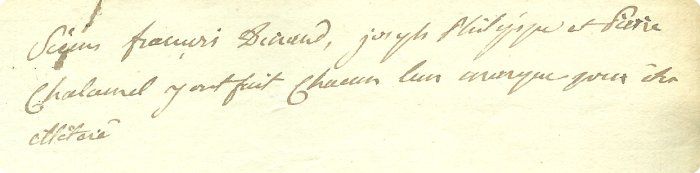 Sieurs francois Durand, joseph Philippe et Pierre
Chalamel y ont fait Chacun leur marque pour être
illiteré